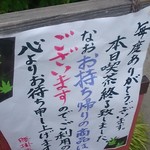 毎度ありがとうございます
本日喫茶終了致しました
なおお持ち帰りの商品は
ございますのでご利用の
心よりお待ち申し上げます